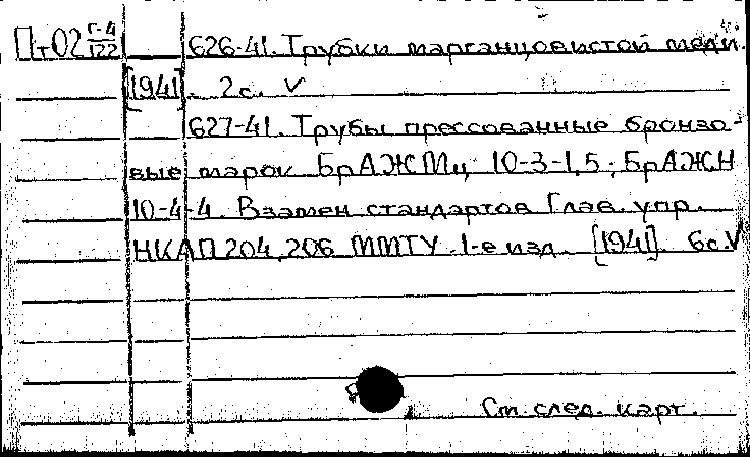 Пт02 Г-4/122 626-41. Трубки марганцовистой меди.
[1941]. 2с. V
627-41. Трубы прессованные бронзо-
вые марок БрАЖМц 10-3-1,5; БрАЖН
10-4-4. Взамен стандартов Глав. упр.
НКАП 204, 206 ММТУ. 1-е изд. [1941]. 6с. V
См. след. карт.